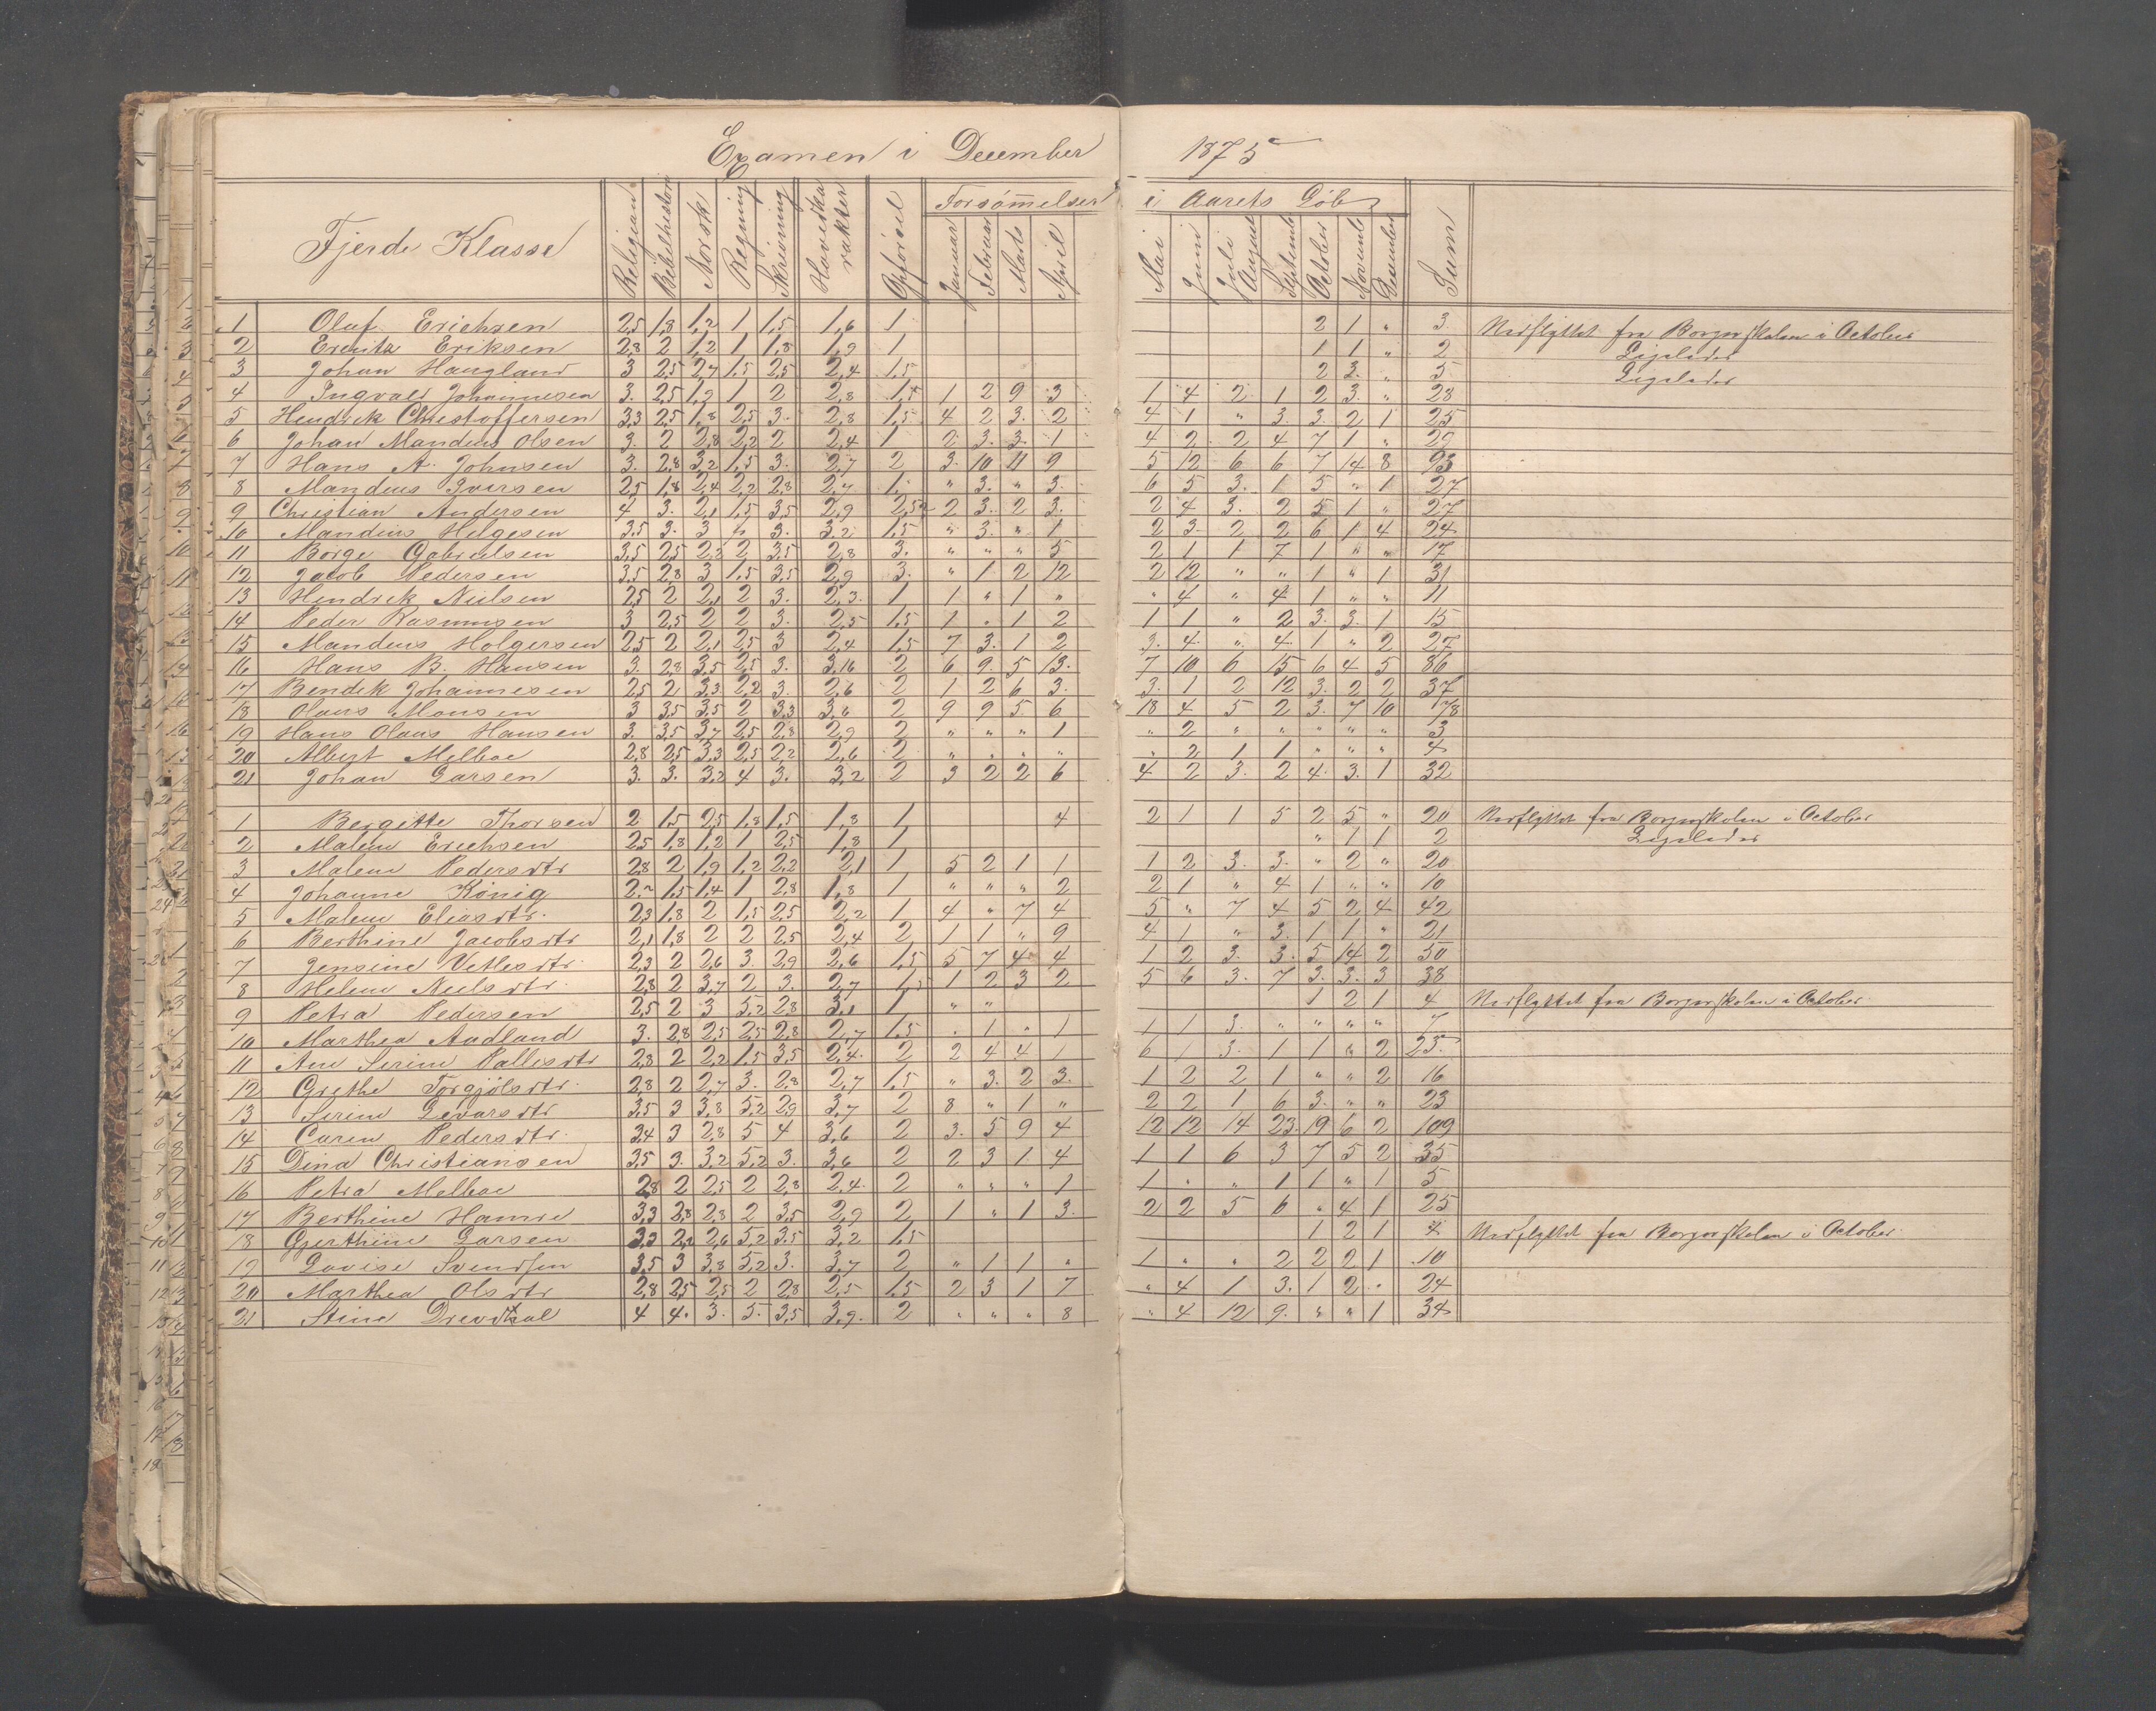 Examen i December 1875
Fjerde Klasse Religion Bibelhistori Norsk Regning Skrivning Hovedka rakter Opførsel Forsømmelser i Aarets Løb Sum
Januar Februar Marts April Mai Juni Juli August Septemb October Novemb Decembr
1 Oluf Erichsen 2,5 1,8 1,2 1 1,5 1,6 1 2 1 " 3 Nedflyttet fra Borgerskolen i October
2 Eriksen 2,8 2 1,2 1 1,8 1,9 1 1 1 " 2 Ligeledes
3 Johan Haugland 3 2,5 2,7 1,5 2,5 2,4 1,5 2 3. " 5 Ligeledes
4 Ingvald Johannesen 3. 2,5 1,9 1 2 2,8 1,5 1 2 9 3 1 4 2 1 2 3. " 28
5 Hendrik Christoffersen 3,3 2,5 1,8 2,5 3. 2,8 1,5 4 2 3. 2 4 1 " 3 3. 2 1 25
6 Johan Mandius Olsen 3. 2 2,8 2,2 2 2,4 1 2 3. 3. 1 4 2 2 4 7 1 " 29
7 Hans A. Johnsen 3. 2,8 3,2 1,5 3. 2,7 2 3. 10 11 9 5 12 6 6 7 14 8 93
8 Mandius Iversen 2,5 1,8 2,4 2,2 2,8 2,7 1, " 3. " 3. 6 5 3. 1 5 " 1 27
9 Christian Andersen 4 3. 2,1 1,5 3,5 2,9 2,5 2 3. 2 3. 2 4 3. 2 5 1 " 27
10 Mandius Helgesen 3,5 3. 3 3. 3,2 1,5 " 3. " 1 2 3. 2 2 6 1 4 24
11 Børge Gabrielsen 3,5 2,5 2,2 2 3,5 2,8 3. " " " 5 2 1 1 7 1 " " 17
12 Jacob Pedersen 3,5 2,8 3 1,5 3,5 2,9 3. " 1 2 12 2 12 " " 1 " 1 31
13 Hendrik Nielsen 2,5 2 2,1 2 3. 2,3. 1 1 " 1 " " 4 " 4 1 " " 11
14 Peder Rasmusen 3 2,5 2 2 3. 2,5 1,5 1 " 1 2 1 1 " 2 3. 3. 1 15
15 Mandius Holgersen 2,5 2 2,1 2,5 3 2,4 1,5 7 3. 1 2 3. 4. " 4. 1 " 2 27
16 Hans B. Hansen 3. 2,8 3,5 2,5 3. 3,16 2 6 9. 5 13. 7 10 6 15 6 4 5 86
17 Bendik Johannesen 2,5 2 3,3 2,2 3. 2,6 2 1 2 6 3. 3. 1 2 12 3. 2 2 37
18 Olaus Monsen 3 3,5 3,5 2 3,3 3,6 2 9 9 5 6 18 4 5 2 3. 7 10 78
19 Hans Olaus Hansen 3. 3,5 3,7 2,5 2,8 2,9 2 " " " 1 " 2 " " " " " 3
20 Albert Melboe 2,8 2,5 3,3 2,5 2,2 2,6 2 " " " " " 2 1 1 " " " 4
21 Johan Larsen 3. 3. 3,2 4 3. 3,2 2 3 2 2 6 4 2 3. 2 4. 3. 1 32
1 Bergitte Thorsen 2 1,5 2,5 1,8 1,5 1,8 1 4 2 1 1 5 2 5 " 20 Nedflyttet fra Borgerskolen i October
2 Malene Erichsen 2,5 1,8 1,2 1 2,5 1,8 1 " 1 1 2 Ligeledes
3 Malene Pedersdtr 2,8 2 1,9 1,2 2,2 2,1 1 5 2 1 1 1 2 3. 3. " 2 " 20
4 Johanne König 2,2 1,5 1,4 1 2,8 1,8 1 " " " 2 2 1 " 4 1 " " 10
5 Malene Eliasdtr. 2,3 1,8 2 1,5 2,5 2,2 1 4 " 7 4 5 " 7 4 5 2 4 42
6 Berthine Jacobsdtr 2,1 1,8 2 2 2,5 2,4 2 1 1 " 9 4 1 " 3. 1 1 " 21
7 Jensine Vetlesdtr. 2,3 2 2,6 3. 2,9 2,6 1,5 5 7 4 4 1 2 3. 3. 5 14 2 50
8 Helene Nielsdtr. 2,8 2 3,7 2 3. 2,7 1,5 1 2 3 2 5 6 3. 7 3. 3. 3 38
9 Petra Pedersen 2,5 2 3 5,2 2,8 3,1 1 " " 1 2 1 4 Nedflyttet fra Borgerskolen i October
10 Marthea Audland 3. 2,8 2,5 2,5 2,8 2,7 1,5 " 1 " 1 1 1 3. " " " " 7
11 Ane Serine Pallesdtr 2,8 2 2,2 1,5 3,5 2,4. 2 2 4 4 1 6 1 3. 1 1 " 2 25.
12 Grethe Torgjølsdtr. 2,8 2 2,7 3. 2,8 2,7 1,5 " 3. 2 3. 1 2 2 1 " " 2 16
13 Serine Sevarsdtr 3,5 3 3,8 5,2 2,9 3,7 2 8 " 1 " 2 2 1 6 3. " " 23
14 Caren Pedersdtr. 3,4 3 2,8 5 4 3,6 2 3. 5 9 4 12 12 14 23. 19 6 2 109
15 Dina Christiansen 3,5 3. 3,2 5,2 3. 3,6 2 2 3 1 4 1 1 6 3 7 5 2 35
16 Petra Melboe 2,8 2 2,5 2 2,8 2,4. 2 " " " 1 1 " " 1 1 " 1 5
17 Berthine Hamre 3,3 2,8 2,8 2 3,5 2,9 2 1 " 1 3. 2 2 5 6 " 4 1 25
18 Gjerthine Larsen 3,3 2,2 2,6 5,2 3,5 3,2 1,5 1 2 1 4 Nedflyttet fra Borgerskolen i October.
19 Lovise Svendsen 3,5 3 3,8 5,2 3. 3,7 2 " 1 1 " 1 " " 2 2 2 1 10
20 Marthea Olsdtr 2,8 2,5 2,5 2 2,8 2,5 1,5 2 3 1 7 " 4 1 3. 1 2 " 24
21 Stine 4 4. 3. 5. 3,5 3,9. 2 " " " 8 " 4 12 9. " " 1 34